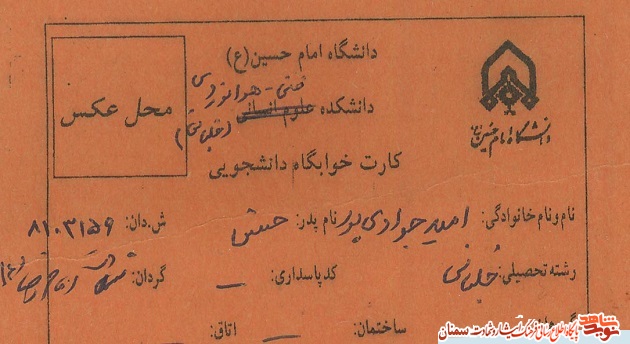 دانشگاه امام حسین (ع)
فنی - هوانوردی
دانشکده علوم انسانی (خلبانی)
کارت خوابگاه دانشجویی
محل عکس
دانشگاه امام حسین
نام و نام خانوادگی: امیر جوادی پور نام پدر: حسن ش.دان: ۸۱۰۳۱۵۹
رشته تحصیلی: خلبانی کدپاسداری: – گردان: امام رضا (ع)
ساختمان: – اتاق:
نوید شاهد
پایگاه اطلاع رسانی فرهنگ ایثار و شهادت سمنان